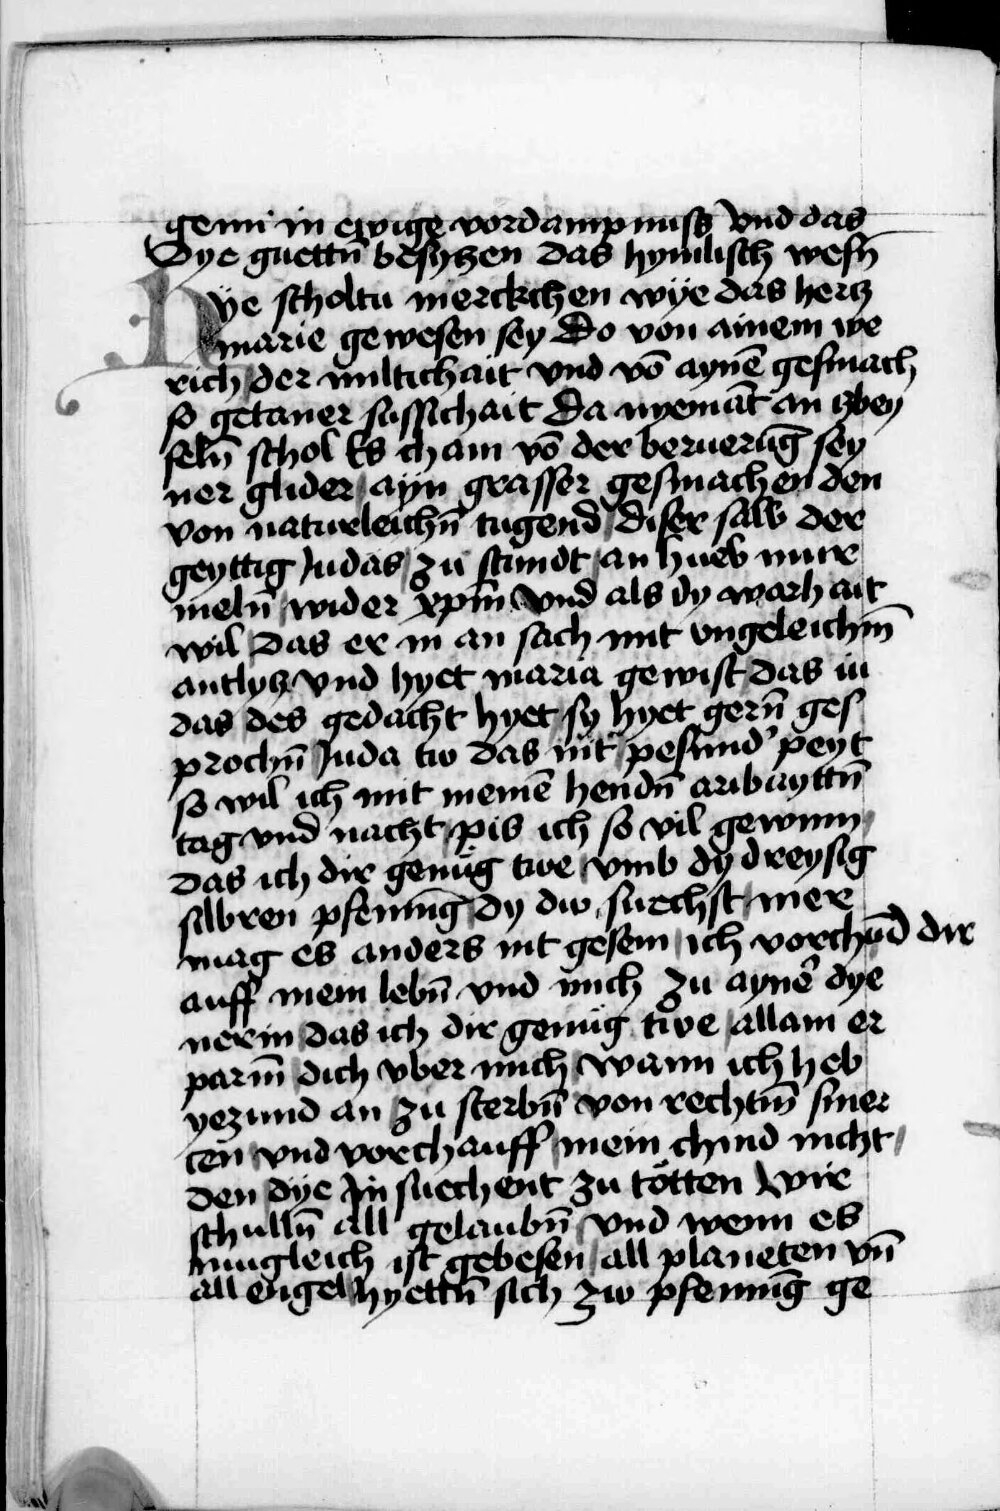 genn in ewige vordampnuss vnd das
Dye guettn̄ besyczen das hymlisch wesn̄
Hye scholtu merckchen wÿe das hercz
marie gewesen seÿ Do von ainem we
rich der miltichait vnd vō aynē gesmach
so getaner sussichait Da nyemāt an czbey
feln̄ schol Es cham vō der beruerūg sey
ner glider ayn grasser gesmachen den
von naturleichn̄ tugend diser salb der
geyttig Judas zu stundt an hueb mur
meln̄ wider xp̄m vnd als dy warhait
wil das er in an sach mit vngeleichm̄
antlycz vnd hyet maria gewist das in
das des gedacht hyet sy hyet gern̄ ges
prochn̄ Juda tw das nit pesund' peyt
so wil ich mit meinē hendn̄ aribayttn̄
tag vnd nacht pis ich so vil gewinn
das ich dir genüg twe vmb dy dreysig
silbren pfeninḡ dy dw suechst mer
mag es anders nit gesein ich vorchūd dir
auff mein lebn̄ vnd mich zu aynē dye
nerin das ich dir genüg twe allain er
parm̄ dich vber mich wann ich heb
yezund an zu sterbn̄ von rechtm̄ smer
czen vnd vorchauff mein chind nicht
den dye In suechent zu tötten wir
schulln̄ all gelaubn̄ vnd wenn es
mugleich ist gebesen all planeten vn̄
all engel hyettn̄ sich zw pfeninḡ ge